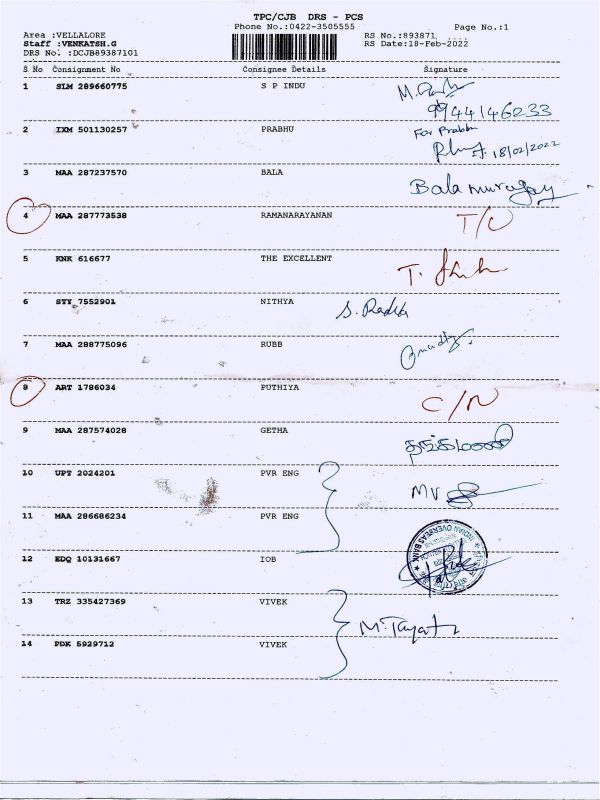 TPC/CJB DRS - PCS
Phone No.:0422-3505555 Page No.:1
Area :VELLALORE RS No.:893871
Staff :VENKATSH.G RS Date:18-Feb-2022
DRS No. :DCJB89387101
S No Consignment No Consignee Details Signature
1 SLM 289660775 S P INDU
9944146233
2 IXM 501130257 PRABHU For Prabhu
18/02/2022
3 MAA 287237570 BALA Balamurugay
4 MAA 287773538 RAMANARAYANAN T/C
5 KNK 616677 THE EXCELLENT T.
6 STY 7552901 NITHYA S. Radha
7 MAA 288775096 RUBB
8 ART 1786034 PUTHIYA C/N
9 MAA 287574028 GETHA
10 UPT 2024201 PVR ENG MV
11 MAA 286686234 PVR ENG
INDIAN OVERSEAS BANK
12 EDQ 10131667 IOB
13 TRZ 335427369 VIVEK
14 PDK 5929712 VIVEK